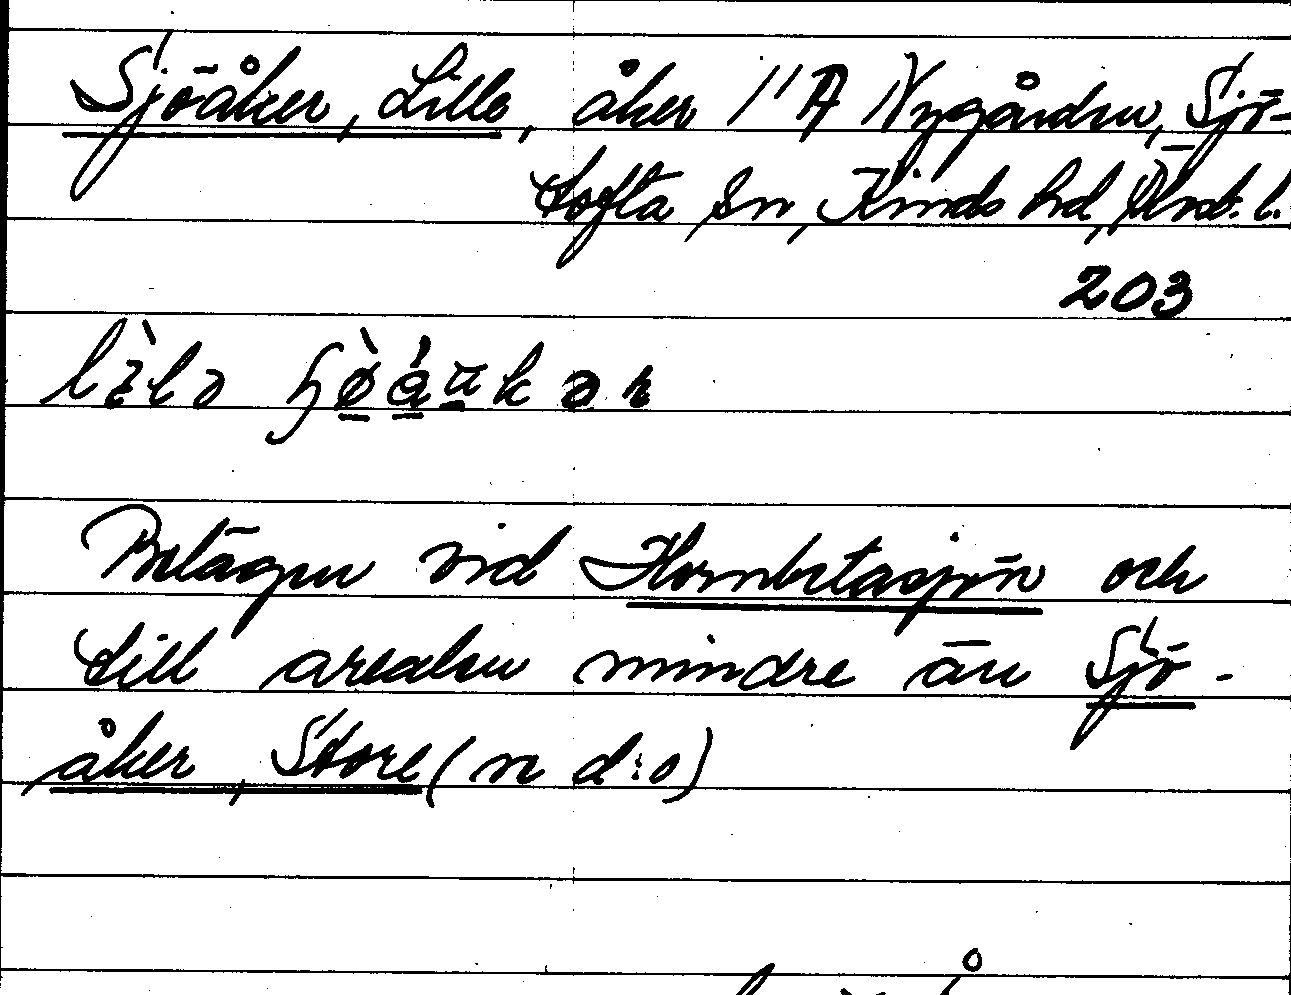 Sjöåker, Lille, åker 1"A Nygården, Sjö-
tofta sn, Kinds hd, Älvsb. l.
203
Belägen vid Hornbetasjön och
till arealen mindre än Sjö-
åker, Store (n d:o)